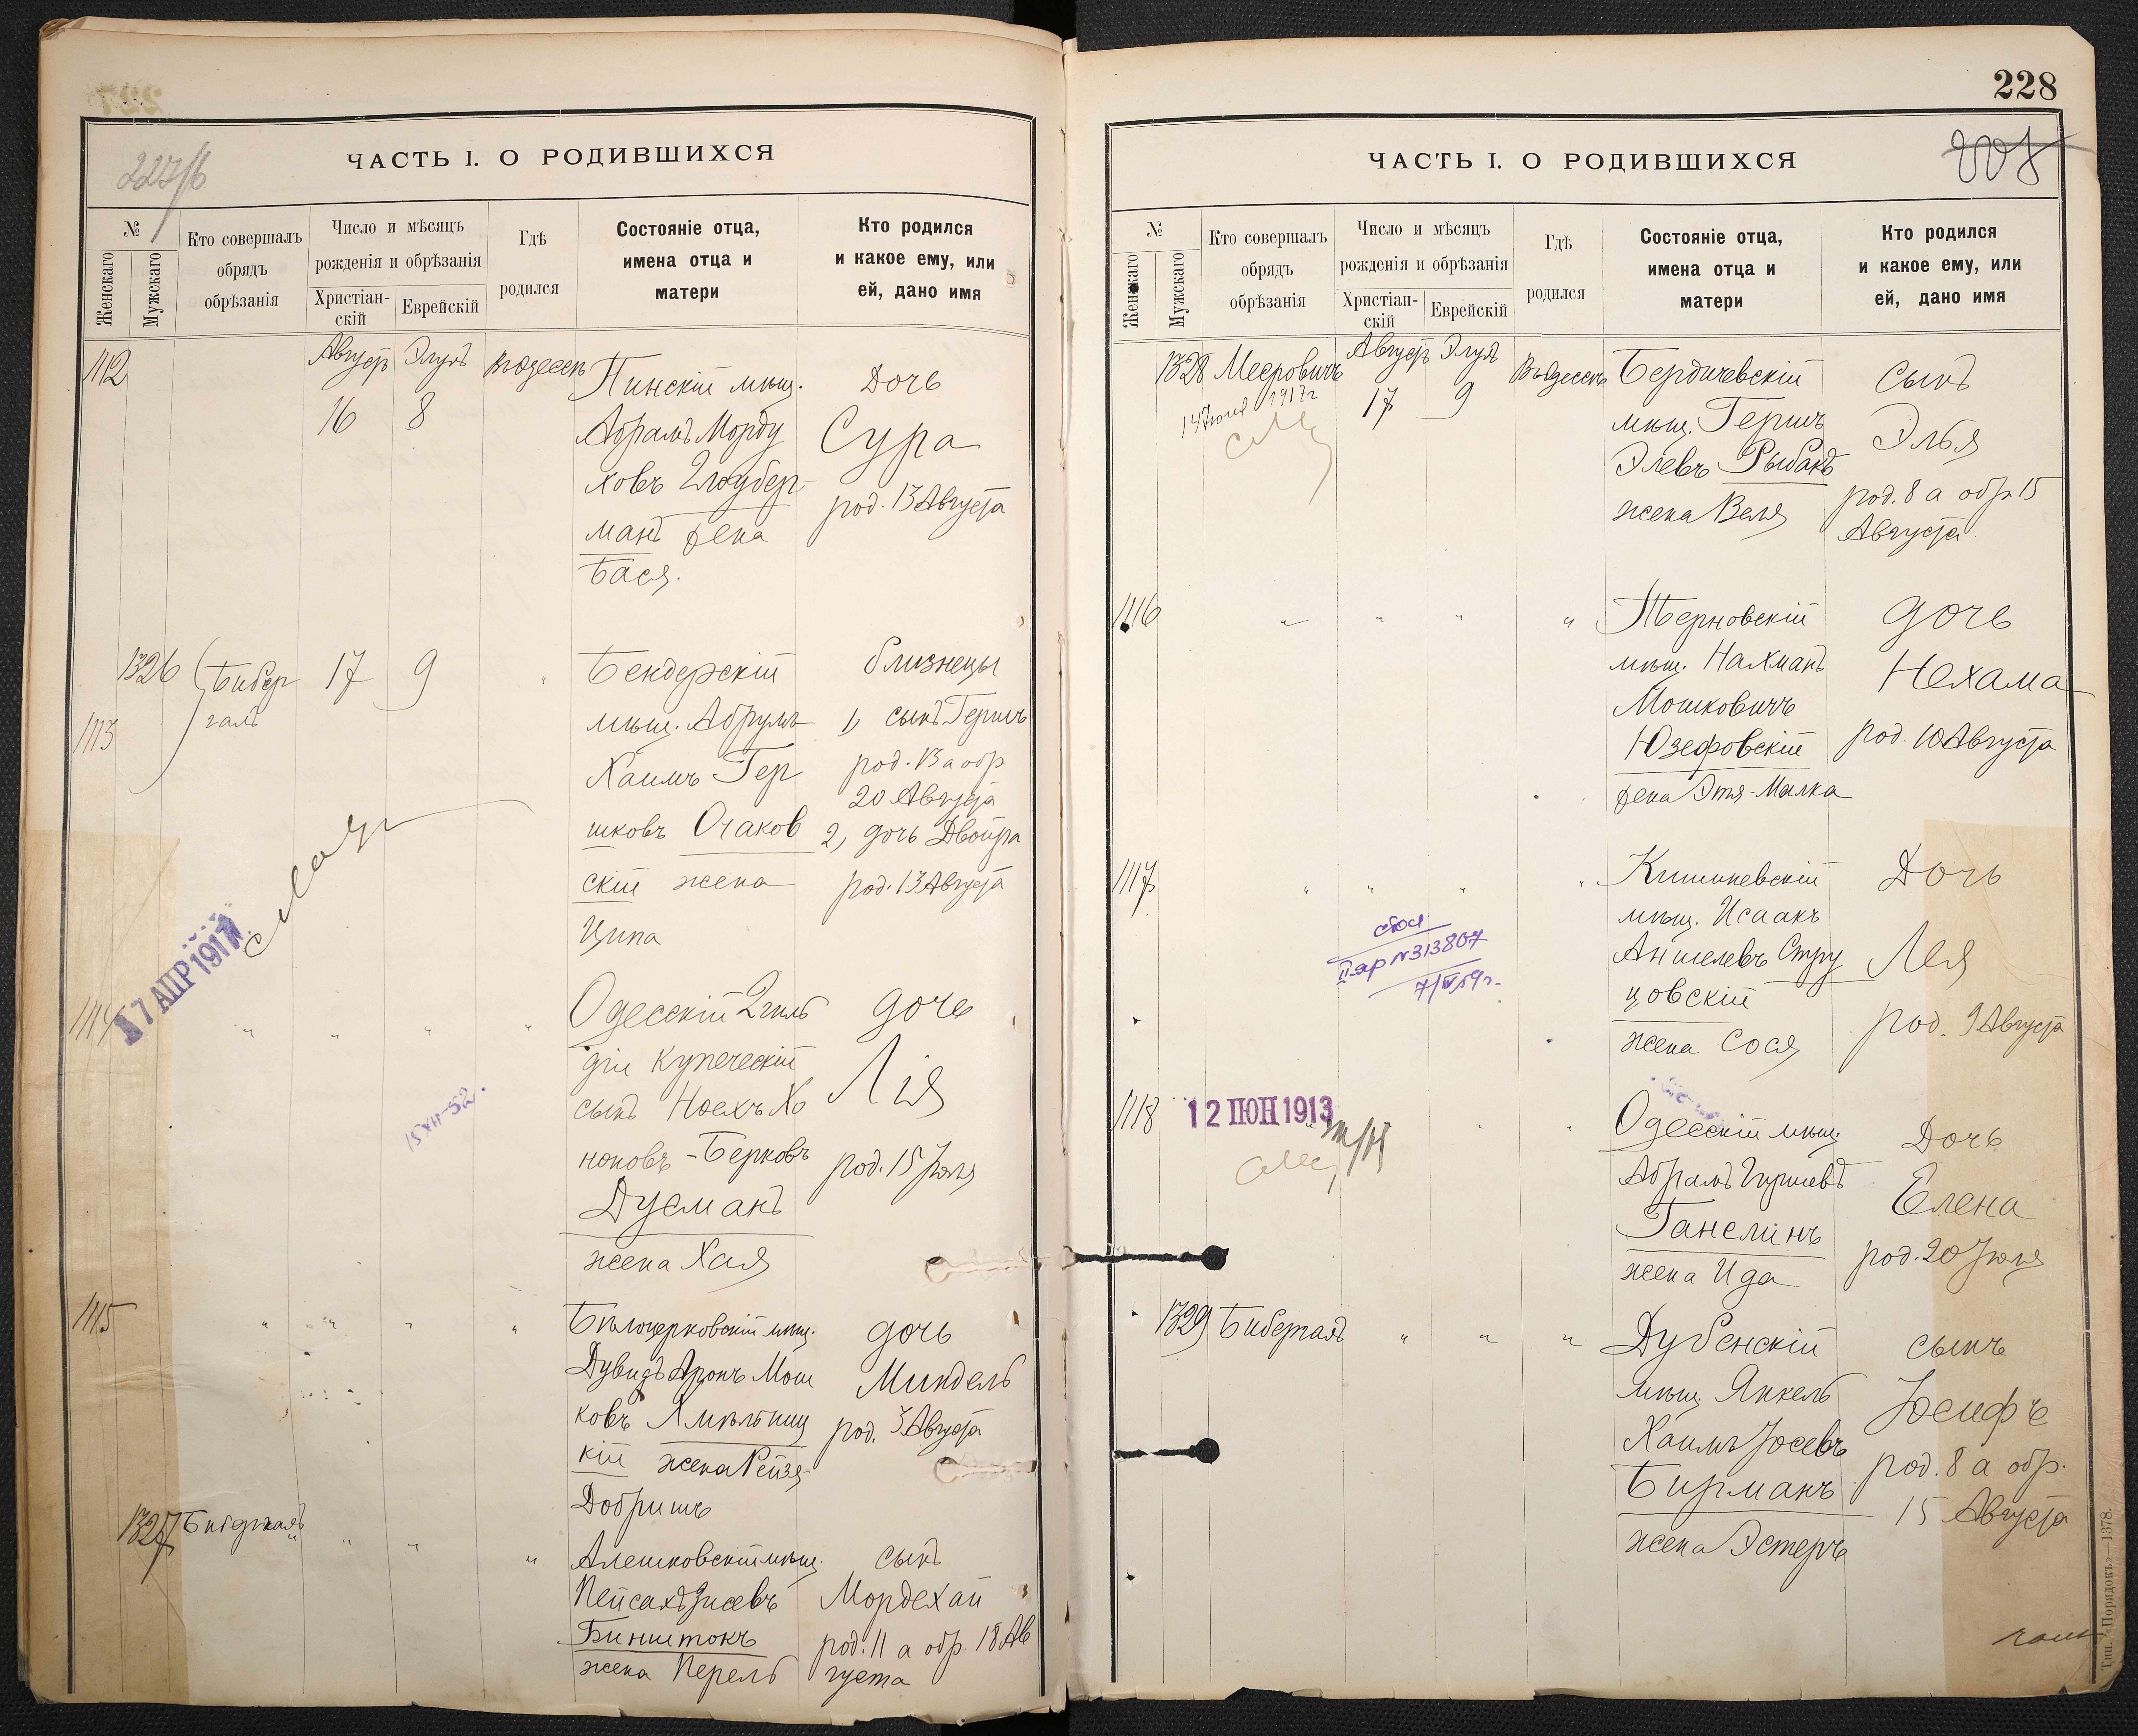 227/б
ЧАСТЬ I. О РОДИВШИХСЯ
№
Женскаго
Мужскаго
Кто совершалъ
обрядъ
обрѣзанія
Число и мѣсяцъ
рожденія и обрѣзанія
Христіан-
скій
Еврейскій
Гдѣ
родился
Состояніе отца,
имена отца и
матери
Кто родился
и какое ему, или
ей, дано имя
1112
Августъ Элулъ
16 8
въ Одессѣ
Пинскій мѣщ.
Абрамъ Морду
ховъ
манъ жена
Бася.
Дочь
Сура
род. 13 Августа
1326
1113
Бибер
галъ
17 9
Бендерскій
мѣщ. Абрумъ
Хаимъ Гер
шковъ Очаков
скій жена
Ципа
близнецы
1, сынъ Гершъ
род. 13 а обр
20 Августа
2, дочь Двойра
род. 13 Августа
17 АПР 1917
1114
" " " "
15 XII-52.
Одесскій 2 гиль
діи купеческій
сынъ Ноехъ Хо
ноновъ-Берковъ
Дусманъ
жена Хая
дочь
Лія
род. 15 Іюля
1115
" " " "
Бѣлоцерковскій мѣщ.
Дувидъ Аронъ Мош
ковъ Хмѣльниц
кій жена Рейзя-
Добришъ
дочь
Миндель
род. 3 Августа
1327
Бибергалъ
" " "
Алешковскій мѣщ.
Пейсахъ Зусевъ
Бинштокъ
жена Перель
сынъ
Мордехай
род. 11 а обр. 18 Ав
густа
228
ЧАСТЬ I. О РОДИВШИХСЯ
№
Женскаго
Мужскаго
Кто совершалъ
обрядъ
обрѣзанія
Число и мѣсяцъ
рожденія и обрѣзанія
Христіан-
скій
Еврейскій
Гдѣ
родился
Состояніе отца,
имена отца и
матери
Кто родился
и какое ему, или
ей, дано имя
1328 Мееровичъ
14 Іюня 1917 г
Августъ Элулъ
17 9
Въ Одессѣ
Бердичевскій
мѣщ. Гершъ
Элевъ Рыбакъ
жена Веля
сынъ
Элья
род. 8 а обр 15
Августа
1116
" " " "
Терновскій
мѣщ. Нахманъ
Мошковичъ
Юзефовскій
жена Этя-Малка
дочь
Нехама
род. 10 Августа
1117
" " " "
II яр №313807
7/IV 59 г.
Кишиневскій
мѣщ. Исаакъ
Аншелевъ Стру
цовскій
жена Сося
Дочь
Лея
род. 9 Августа
1118
12 ІЮН 1913
Одесскій мѣщ.
Абрамъ Гиршевъ
Ганелинъ
жена Ида
Дочь
Елена
род. 20 Іюля
1329 Бибергалъ
" " "
Дубенскій
мѣщ. Янкель
Хаимъ Іосевъ
Бирманъ
жена Эстеръ
сынъ
Іосифъ
род. 8 а обр.
15 Августа
Тип. «Порядокъ»—1378.